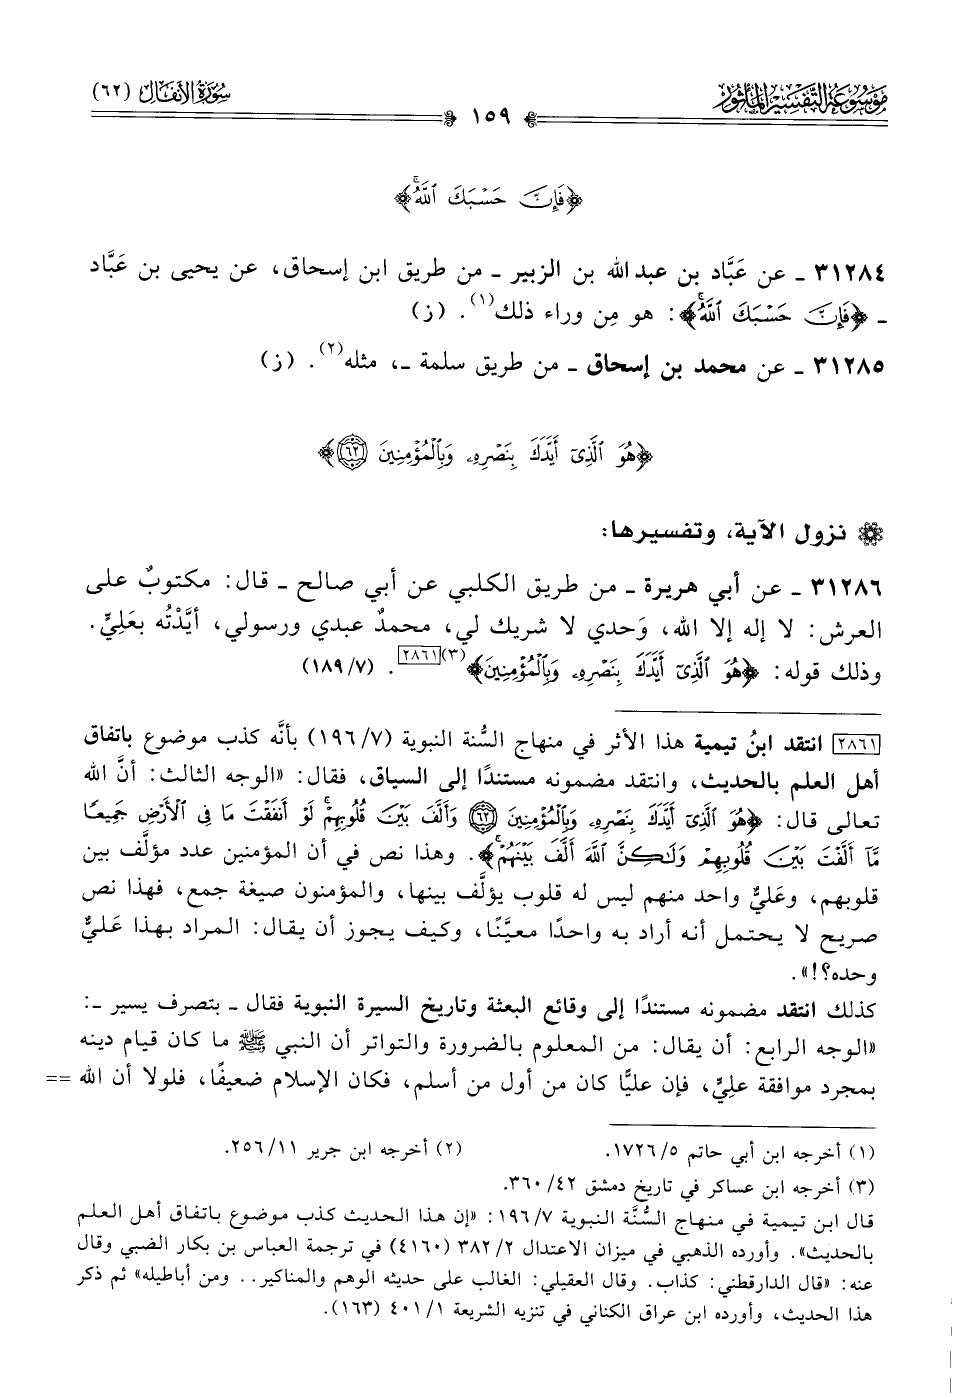 موسوعة التفسير المأثور
سورة الأنفال (٦٢)
١٥٩
﴿فَإِنَّ حَسْبَكَ ٱللَّهُۚ﴾
٣١٢٨٤ ـ عن عَبَّاد بن عبد الله بن الزبير ـ من طريق ابن إسحاق، عن يحيى بن عَبَّاد
ـ ﴿فَإِنَّ حَسْبَكَ ٱللَّهُۚ﴾: هو مِن وراء ذلك(١). (ز)
٣١٢٨٥ ـ عن محمد بن إسحاق ـ من طريق سلمة ـ، مثله(٢). (ز)
﴿هُوَ ٱلَّذِىٓ أَيَّدَكَ بِنَصْرِهِۦ وَبِٱلْمُؤْمِنِينَ ٦٢﴾
نزول الآية، وتفسيرها:
٣١٢٨٦ ـ عن أبي هريرة ـ من طريق الكلبي عن أبي صالح ـ قال: مكتوبٌ على
العرش: لا إله إلا الله، وَحدي لا شريك لي، محمدٌ عبدي ورسولي، أيَّدْتُه بعَلِيٍّ.
وذلك قوله: ﴿هُوَ ٱلَّذِىٓ أَيَّدَكَ بِنَصْرِهِۦ وَبِٱلْمُؤْمِنِينَ﴾(٣)[٢٨٦١]. (١٨٩/٧)
[٢٨٦١] انتقد ابنُ تيمية هذا الأثر في منهاج السُّنة النبوية (١٩٦/٧) بأنَّه كذب موضوع باتفاق
أهل العلم بالحديث، وانتقد مضمونه مستندًا إلى السياق، فقال: «الوجه الثالث: أنَّ الله
تعالى قال: ﴿هُوَ ٱلَّذِىٓ أَيَّدَكَ بِنَصْرِهِۦ وَبِٱلْمُؤْمِنِينَ ٦٢ وَأَلَّفَ بَيْنَ قُلُوبِهِمْۚ لَوْ أَنفَقْتَ مَا فِى ٱلْأَرْضِ جَمِيعًا
مَّآ أَلَّفْتَ بَيْنَ قُلُوبِهِمْ وَلَٰكِنَّ ٱللَّهَ أَلَّفَ بَيْنَهُمْۚ﴾. وهذا نص في أن المؤمنين عدد مؤلَّف بين
قلوبهم، وعَليٌّ واحد منهم ليس له قلوب يؤلَّف بينها، والمؤمنون صيغة جمع، فهذا نص
صريح لا يحتمل أنه أراد به واحدًا معيَّنًا، وكيف يجوز أن يقال: المراد بهذا عَليٌّ
وحده؟!».
كذلك انتقد مضمونه مستندًا إلى وقائع البعثة وتاريخ السيرة النبوية فقال ـ بتصرف يسير ـ:
«الوجه الرابع: أن يقال: من المعلوم بالضرورة والتواتر أن النبي ﷺ ما كان قيام دينه
بمجرد موافقة عليٍّ، فإن عليًّا كان من أول من أسلم، فكان الإسلام ضعيفًا، فلولا أن الله ==
(١) أخرجه ابن أبي حاتم ١٧٢٦/٥. (٢) أخرجه ابن جرير ٢٥٦/١١.
(٣) أخرجه ابن عساكر في تاريخ دمشق ٣٦٠/٤٢.
قال ابن تيمية في منهاج السُّنَّة النبوية ١٩٦/٧: «إن هذا الحديث كذب موضوع باتفاق أهل العلم
بالحديث». وأورده الذهبي في ميزان الاعتدال ٣٨٢/٢ (٤١٦٠) في ترجمة العباس بن بكار الضبي وقال
عنه: «قال الدارقطني: كذاب. وقال العقيلي: الغالب على حديثه الوهم والمناكير.. ومن أباطيله» ثم ذكر
هذا الحديث، وأورده ابن عراق الكناني في تنزيه الشريعة ٤٠١/١ (١٦٣).